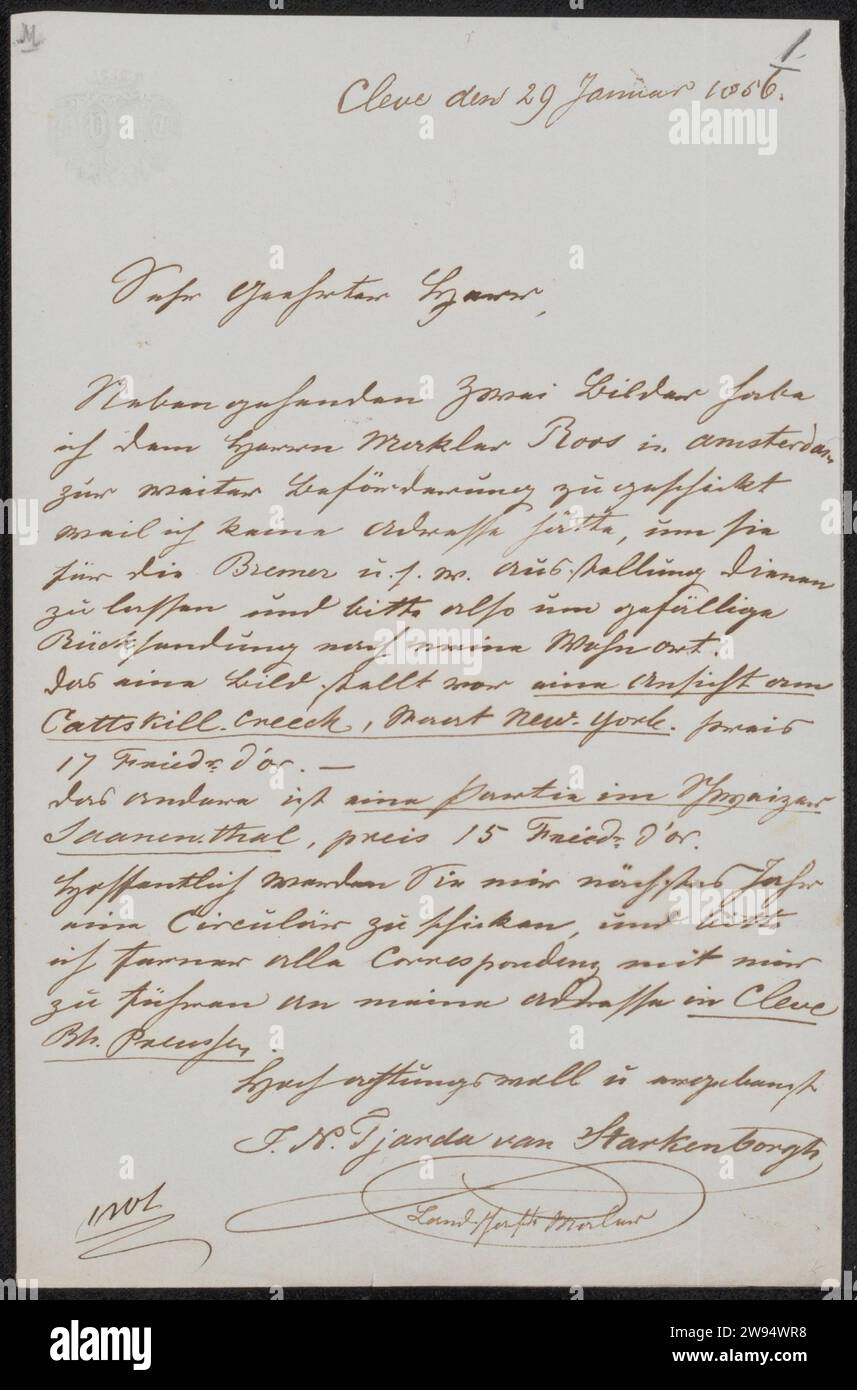 M
1.
Cleve den 29 Januar 1856.
Sehr geehrter Herr,
Nebengehenden zwei Bilder habe
ich dem Herrn Makler Roos in Amsterdam
zur weiter Beförderung zugeschickt
weil ich keine Adresse hatte, um sie
für die Bremer u. s. w. Ausstellung dienen
zu lassen und bitte also um gefällige
Rücksendung nach meine Wohnort.
Das eine Bild stellt vor eine Ansicht am
Cattskill-Creeck, Staat New-York. preis
17 Friedr. d'or. —
Das andere ist eine Partie im Schweizer
Saanenthal, preis 15 Friedr. d'or.
Hoffentlich werden Sie mir nächstes Jahr
eine Circulär zu schicken, und bitte
ich ferner alle Correspondenz mit mir
zu führen an meine Adresse in Cleve
Rh. Preussen.
Hochachtungsvoll u ergebenst
J. N. Tjarda van Starkenborgh
Landschafts Maler
alamy
Image ID: 2W94WR8
www.alamy.com